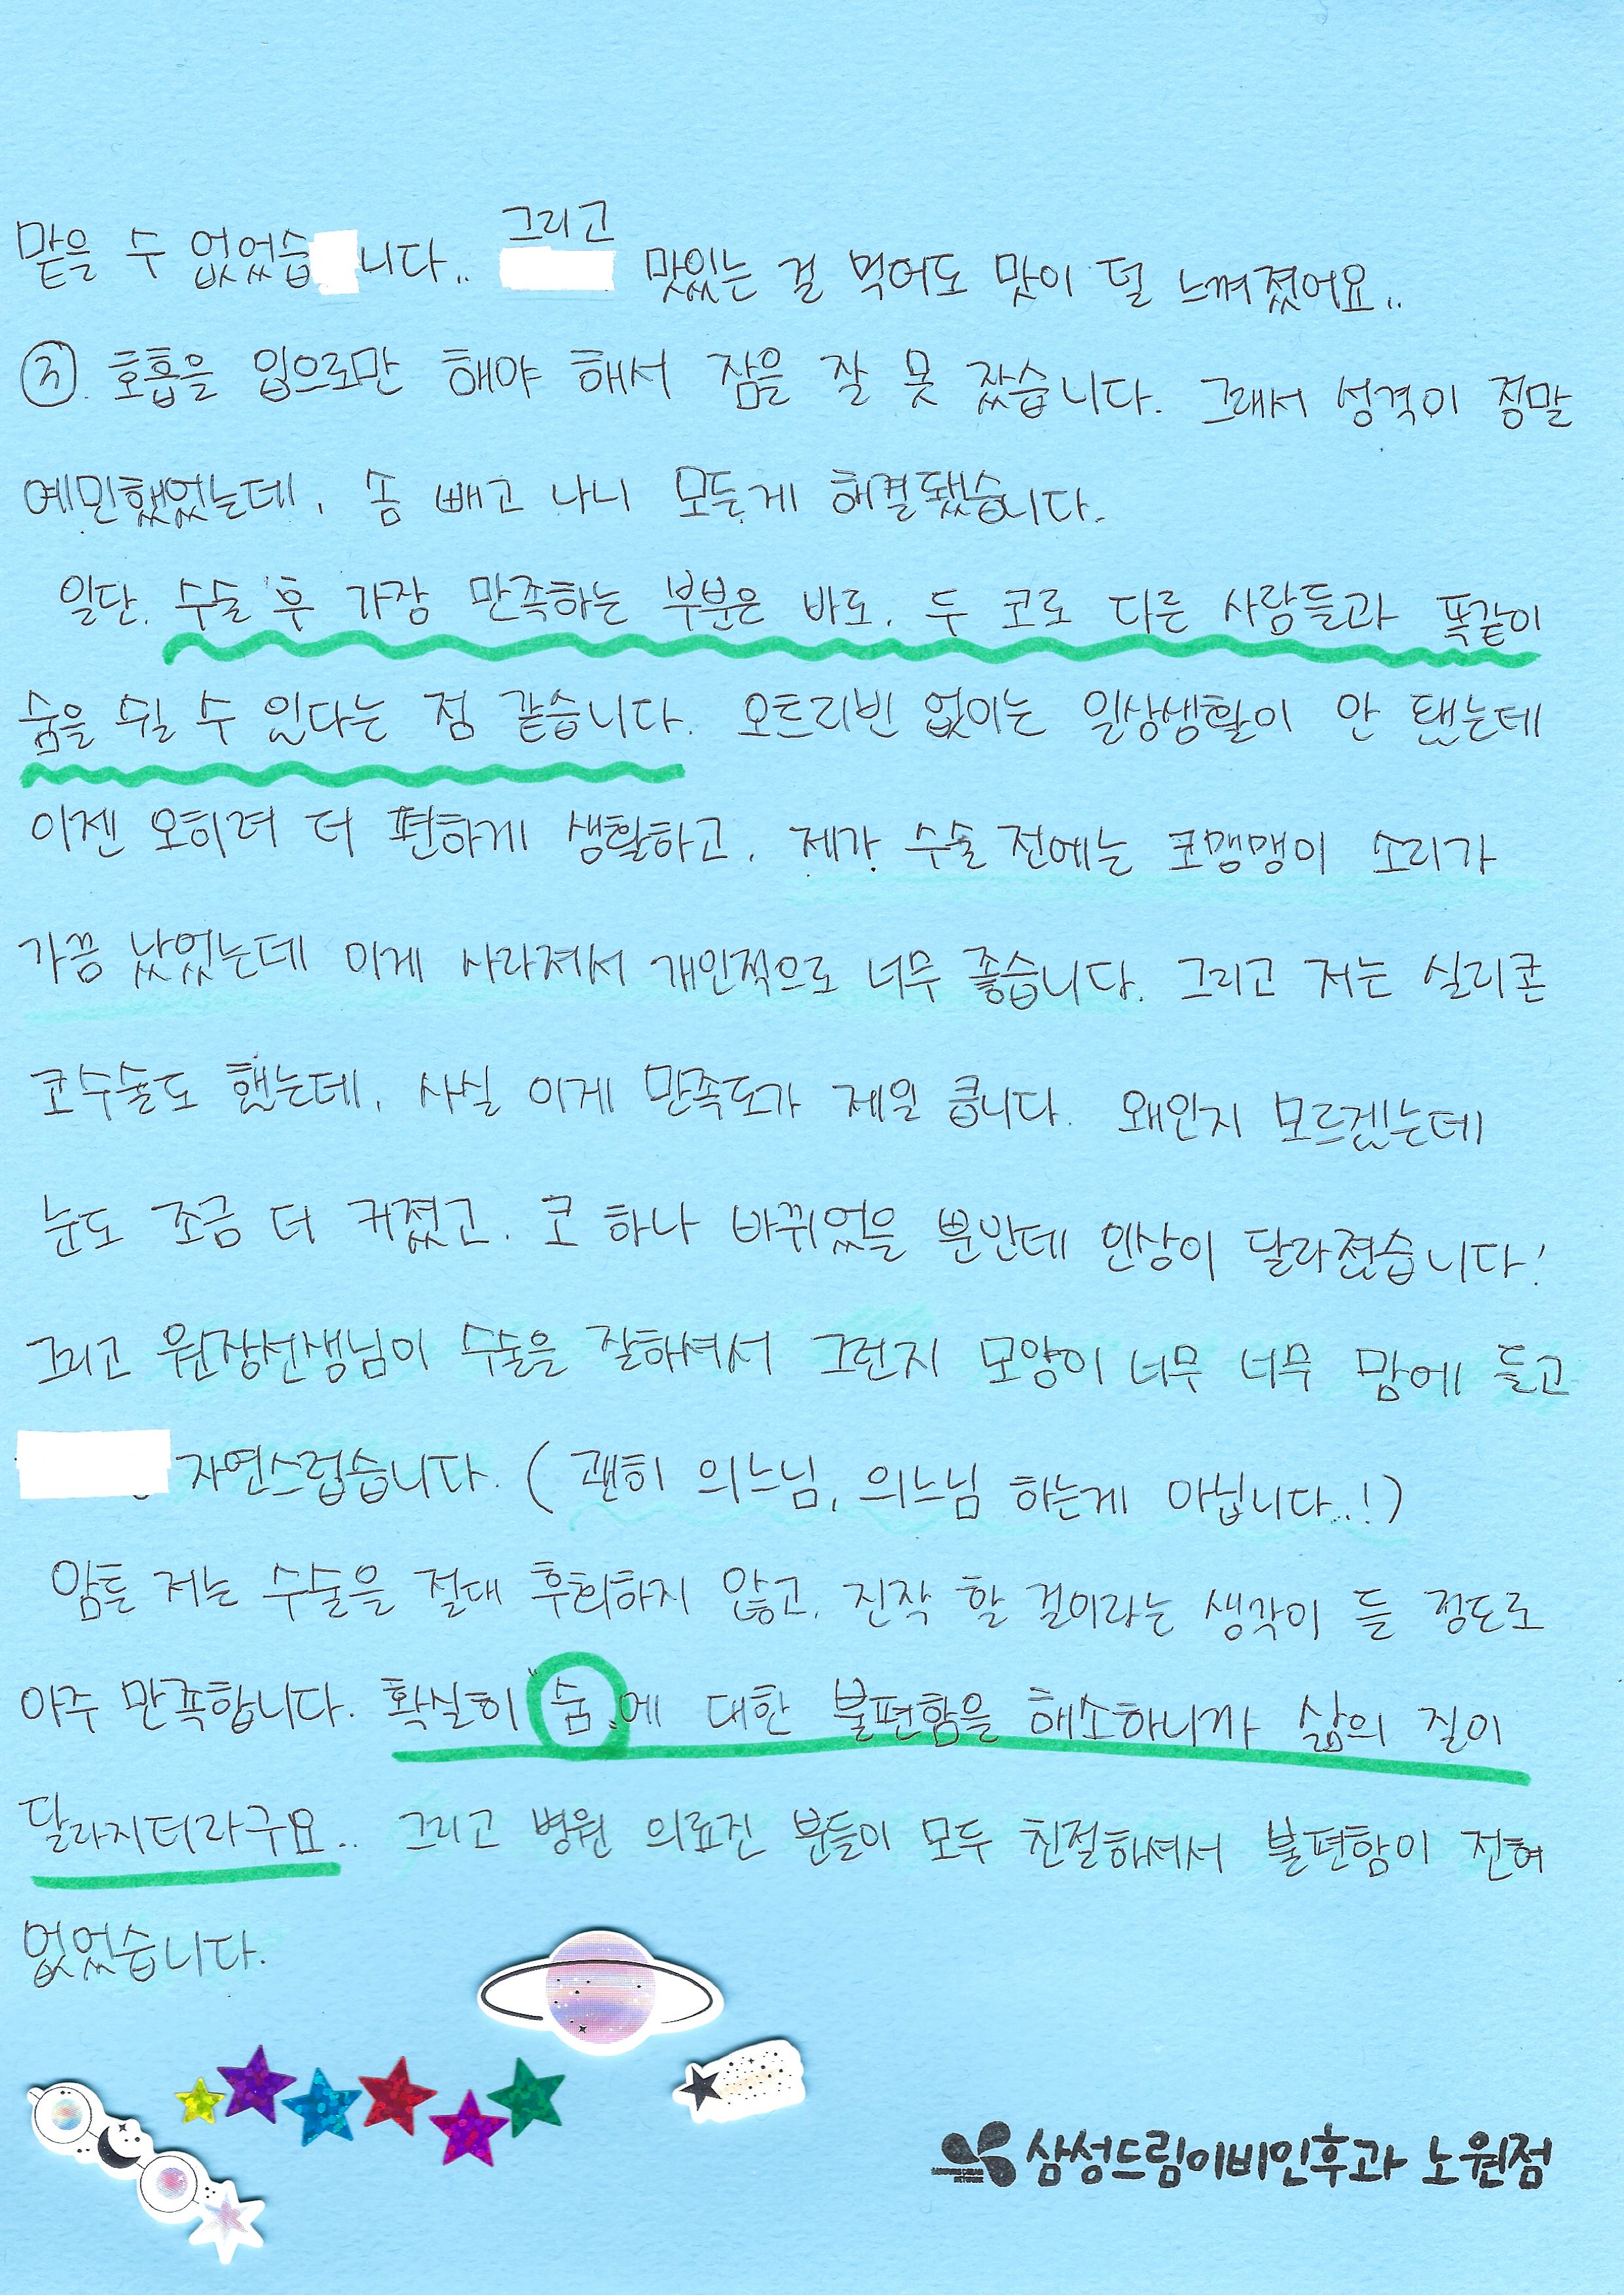 맡을 수 없었습니다.. 그리고 맛있는 걸 먹어도 맛이 덜 느껴졌어요..
③. 호흡을 입으로만 해야 해서 잠을 잘 못 잤습니다. 그래서 성격이 정말
예민했었는데, 솜 빼고 나니 모든게 해결됐습니다.
일단, 수술 후 가장 만족하는 부분은 바로, 두 코로 다른 사람들과 똑같이
숨을 쉴 수 있다는 점 같습니다. 오트리빈 없이는 일상생활이 안 됐는데
이젠 오히려 더 편하게 생활하고, 제가 수술 전에는 코맹맹이 소리가
가끔 났었는데 이게 사라져서 개인적으로 너무 좋습니다. 그리고 저는 실리콘
코수술도 했는데, 사실 이게 만족도가 제일 큽니다. 왜인지 모르겠는데
눈도 조금 더 커졌고, 코 하나 바뀌었을 뿐반데 인상이 달라졌습니다!
그리고 원장선생님이 수술을 잘해셔서 그런지 모양이 너무 너무 맘에 들고
자연스럽습니다. (괜히 의느님, 의느님 하는게 아닙니다..!)
암튼 저는 수술을 절대 후회하지 않고, 진작 할 걸이라는 생각이 들 정도로
아주 만족합니다. 확실히 "숨"에 대한 불편함을 해소하니까 삶의 질이
달라지더라구요.. 그리고 병원 의료진 분들이 모두 친절해셔서 불편함이 전혀
없었습니다.
삼성드림이비인후과 노원점